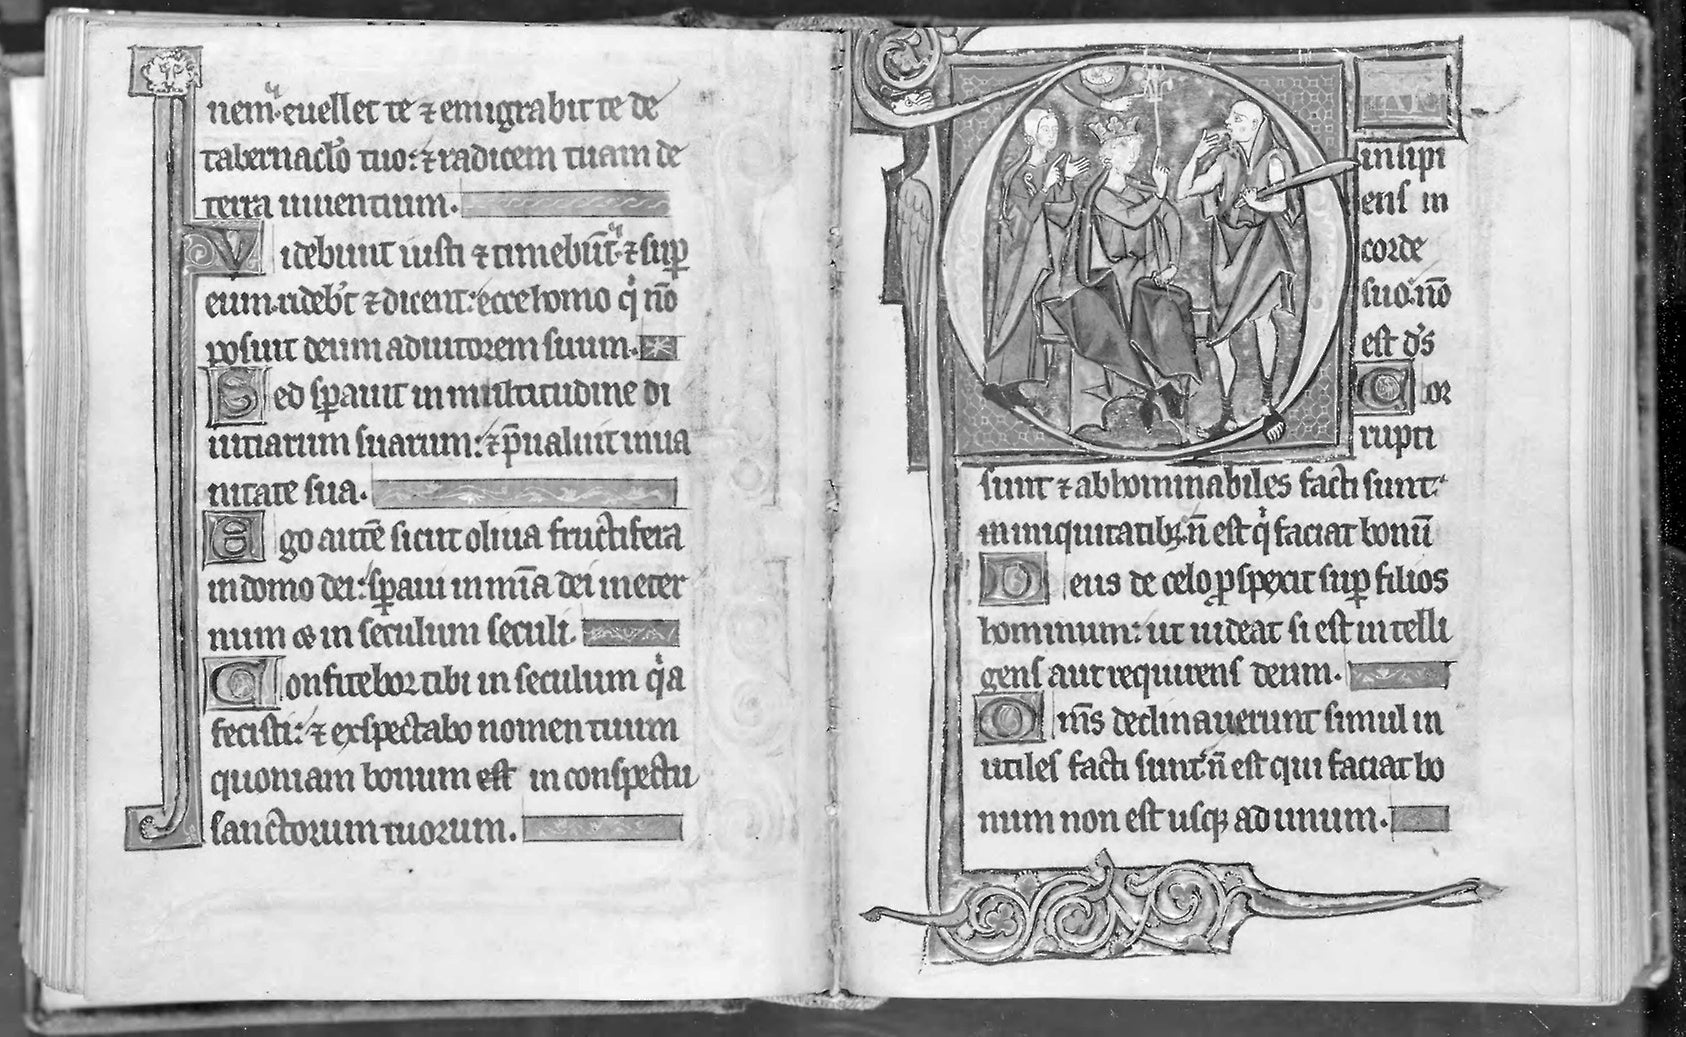 nem. euellet te ⁊ emigrabit te de
tabernacl̓o tuo: ⁊ radicem tuam de
terra uiuentium.
Videbunt iusti ⁊ timebūt. ⁊ sup̱
eum ridebt̓ ⁊ dicent: ecce homo qͥ nō
posuit deum adiutorem suum.
Sed sp̱auit in multitudine di
uitiarum suarum: ⁊ p̄ualuit in ua
nitate sua.
Ego autē sicut oliua fructifera
in domo dei: sp̱aui in mīa dei in eter
num ⁊ in seculum seculi.
Confitebor tibi in seculum qͥa
fecisti: ⁊ exspectabo nomen tuum
quoniam bonum est in conspectu
sanctorum tuorum.
DIXIT
insipi
ens in
corde
suo: nō
est d̓s
Cor
rupti
sunt ⁊ abhominabiles facti sunt
in iniquitatibꝫ. n̄ est qͥ faciat bonū
Deus de celo ꝓspexit sup̱ filios
hominum: ut uideat si est intelli
gens aut requirens deum.
Om̄s declinauerunt simul in
utiles facti sunt n̄ est qui faciat bo
num non est usqꝫ ad unum.